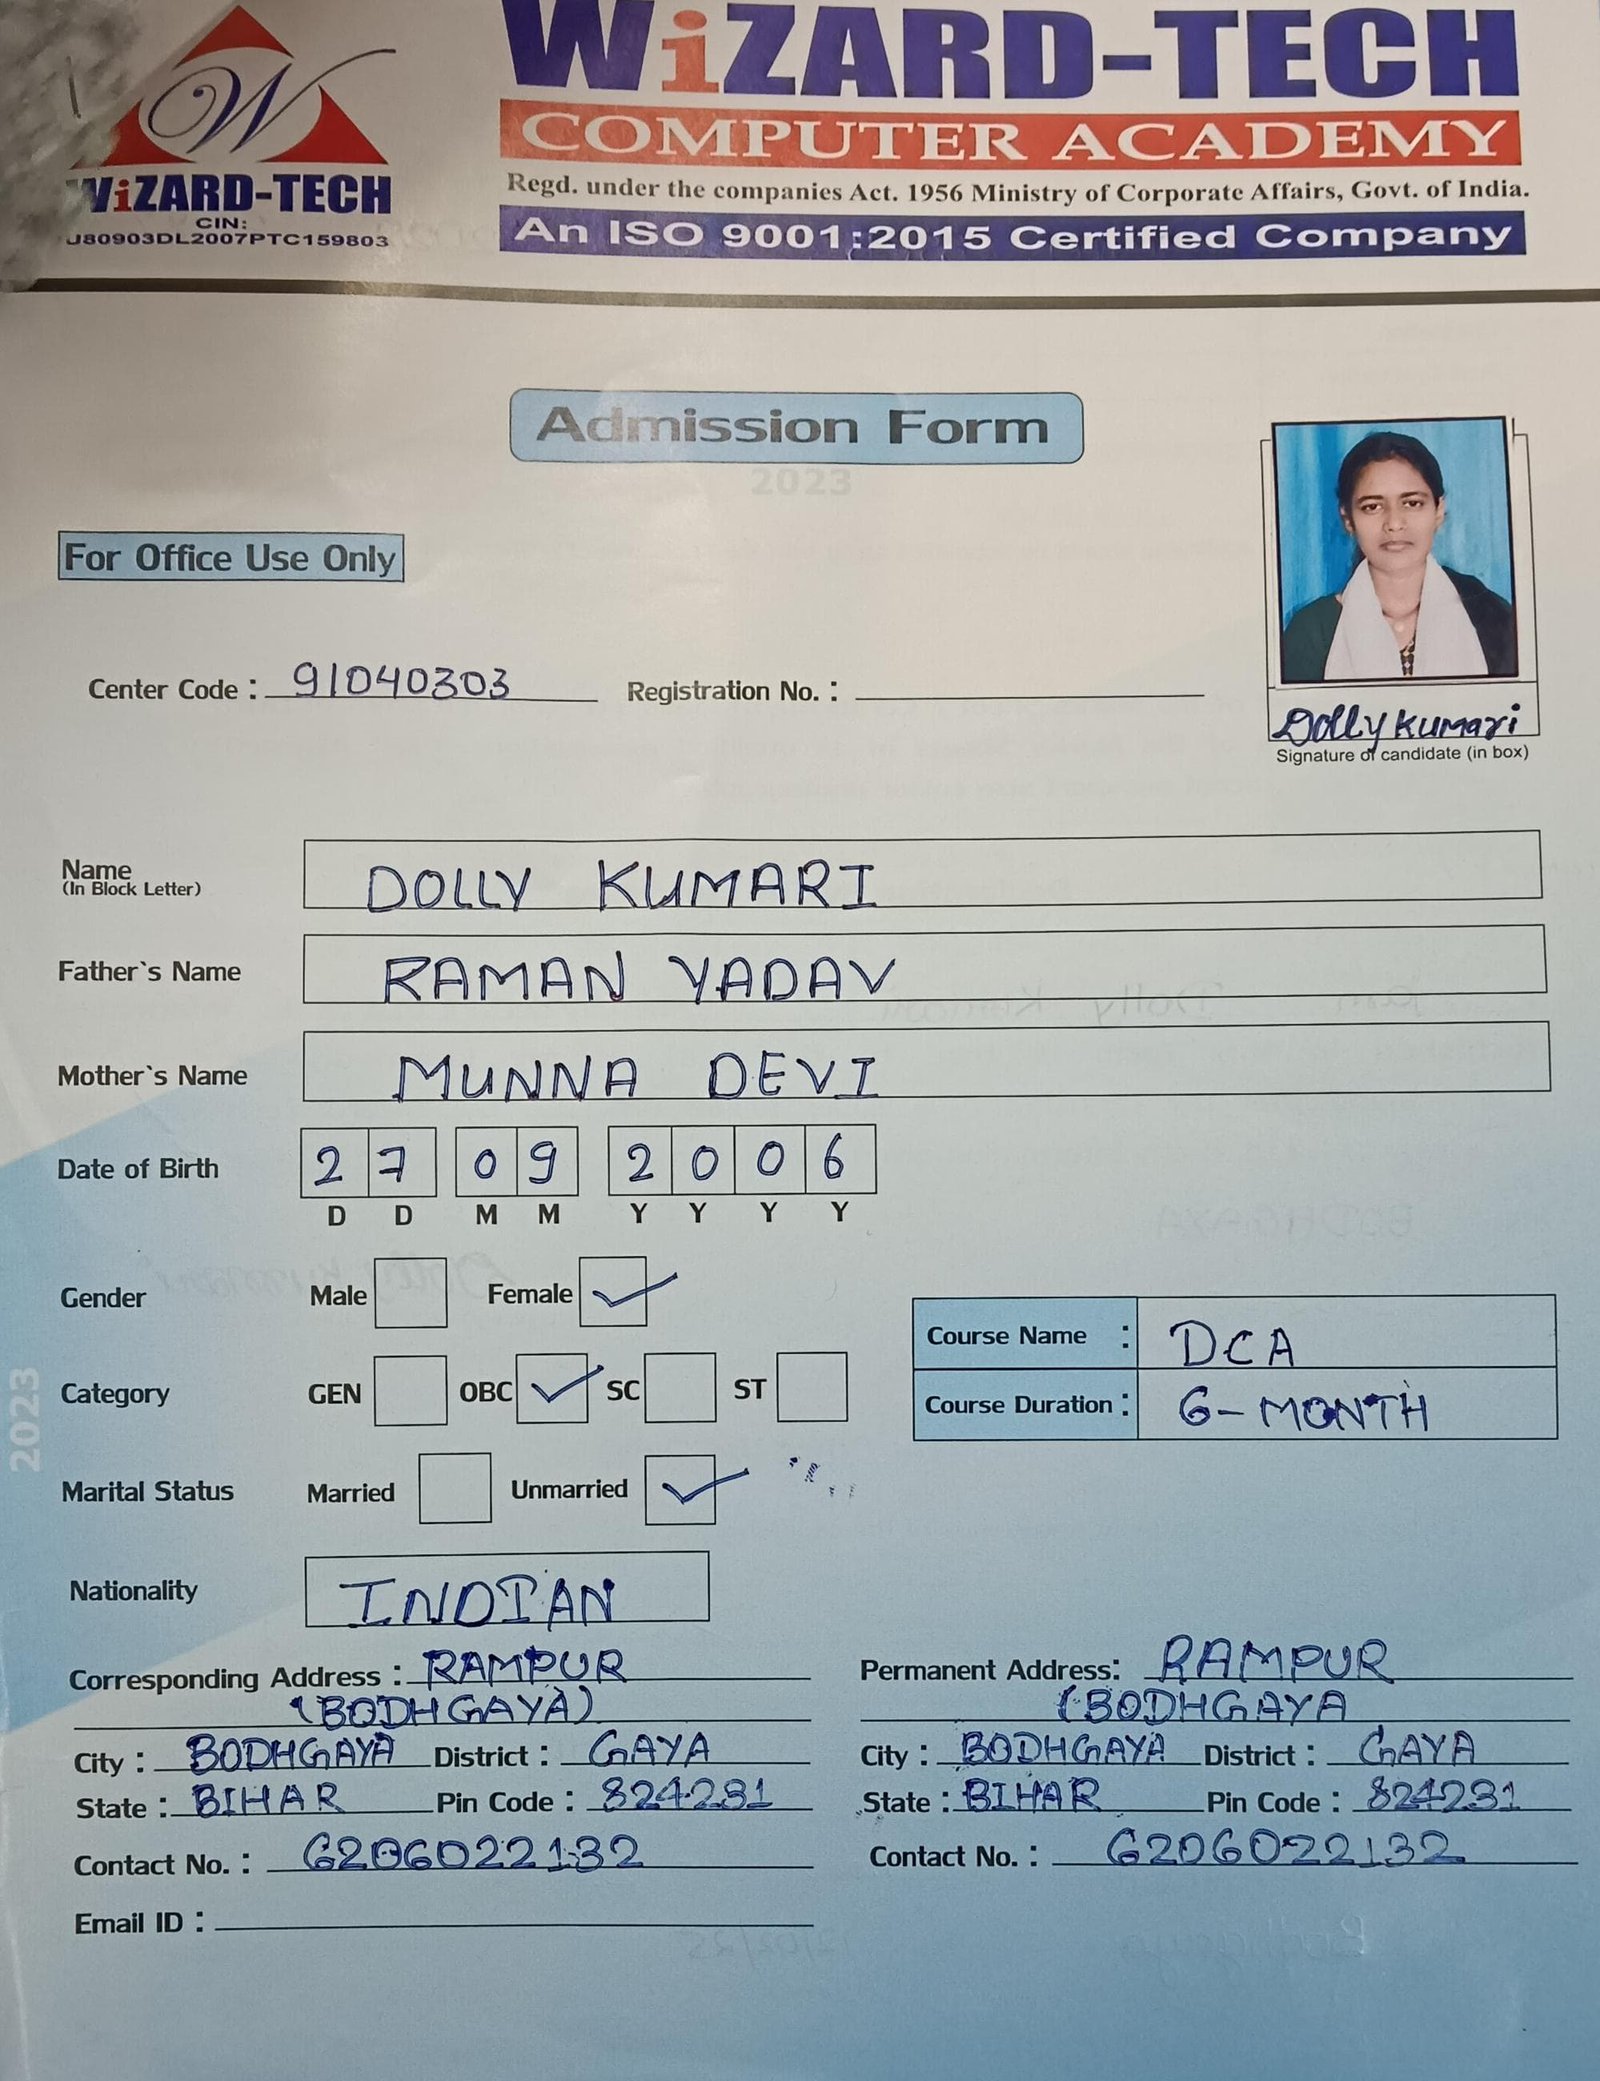 WiZARD-TECH
COMPUTER ACADEMY
Regd. under the companies Act. 1956 Ministry of Corporate Affairs, Govt. of India.
An ISO 9001:2015 Certified Company
W
WiZARD-TECH
CIN:
U80903DL2007PTC159803
Admission Form
2023
For Office Use Only
Center Code : 91040303 Registration No. :
Dolly Kumari
Signature of candidate (in box)
Name DOLLY KUMARI
(In Block Letter)
Father`s Name RAMAN YADAV
Mother`s Name MUNNA DEVI
Date of Birth 27 09 2006
D D M M Y Y Y Y
Gender Male Female
Course Name : DCA
Category GEN OBC SC ST
Course Duration : 6-MONTH
2023
Marital Status Married Unmarried
Nationality INDIAN
Corresponding Address : RAMPUR Permanent Address: RAMPUR
(BODHGAYA) (BODHGAYA
City : BODHGAYA District : GAYA City : BODHGAYA District : GAYA
State : BIHAR Pin Code : 824231 State : BIHAR Pin Code : 824231
Contact No. : 6206022132 Contact No. : 6206022132
Email ID :